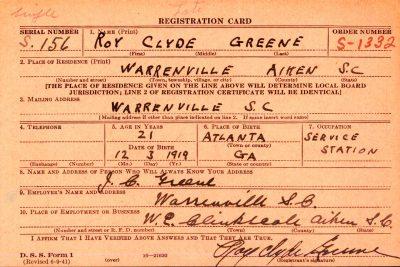 single
REGISTRATION CARD
SERIAL NUMBER 1. NAME (Print) ORDER NUMBER
S. 156 ROY CLYDE GREENE S-1332
(First) (Middle) (Last)
2. PLACE OF RESIDENCE (Print)
WARRENVILLE AIKEN S.C
(Number and street) (Town, township, village, or city) (County) (State)
[THE PLACE OF RESIDENCE GIVEN ON THE LINE ABOVE WILL DETERMINE LOCAL BOARD
JURISDICTION; LINE 2 OF REGISTRATION CERTIFICATE WILL BE IDENTICAL]
3. MAILING ADDRESS
WARRENVILLE S.C
[Mailing address if other than place indicated on line 2. If same insert word same]
4. TELEPHONE 5. AGE IN YEARS 6. PLACE OF BIRTH 7. OCCUPATION
21 ATLANTA SERVICE
DATE OF BIRTH (Town or county) STATION
12 3 1919 GA
(Exchange) (Number) (Mo.) (Day) (Yr.) (State or country)
8. NAME AND ADDRESS OF PERSON WHO WILL ALWAYS KNOW YOUR ADDRESS
J. C. Greene
9. EMPLOYER'S NAME AND ADDRESS
Warrenville S.C.
10. PLACE OF EMPLOYMENT OR BUSINESS
W. C. Clinkscale Aiken S.C.
(Number and street or R. F. D. number) (Town) (County) (State)
I AFFIRM THAT I HAVE VERIFIED ABOVE ANSWERS AND THAT THEY ARE TRUE.
D. S. S. Form 1
(Revised 6-9-41) 16-21630 Roy Clyde Greene